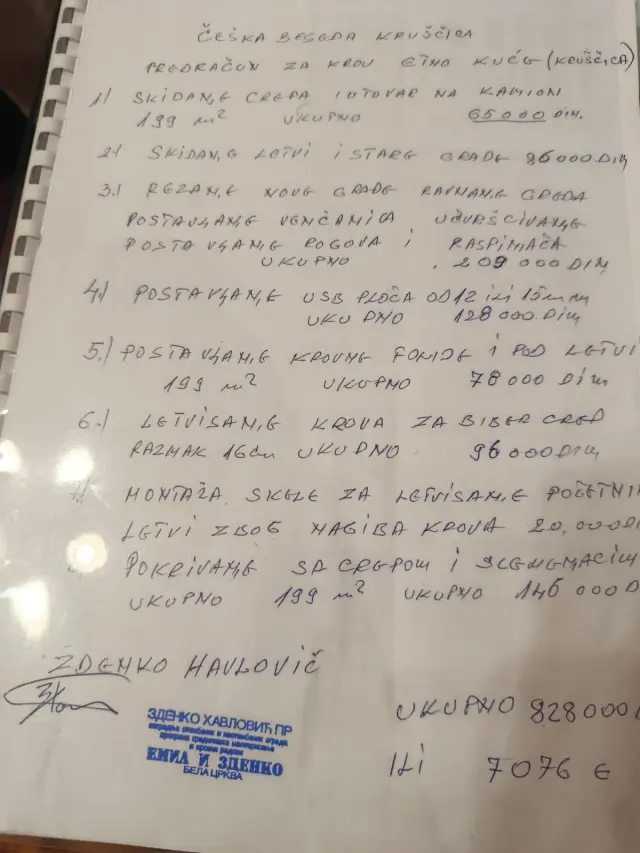 ČEŠKA BESEDA KRUŠČICA
PREDRAČUN ZA KROV ETNO KUĆE (KRUŠČICA)
1) SKIDANJE CREPA I UTOVAR NA KAMION
199 m² UKUPNO 65000 DIN.
2.) SKIDANJE LETVI I STARE GRAĐE 86000 DIN
3.) REZANJE NOVE GRAĐE RAVNANJE GREDA
POSTAVLJANJE VENČANICA, UČVRŠĆIVANJE
POSTAVLJANJE ROGOVA I RASPINJAČA
UKUPNO 209 000 DIN
4.) POSTAVLJANJE USB PLOČA OD 12 ILI 15mm
UKUPNO 128 000. DIN
5.) POSTAVLJANJE KROVNE FOLIJE I POD LETVI
199 m² UKUPNO 78 000 DIN
6.) LETVISANJE KROVA ZA BIBER CREP
RAZMAK 16cm UKUPNO 96 000 DIN
MONTAŽA SKELE ZA LETVISANJE POČETNI
LETVI ZBOG NAGIBA KROVA 20,000 DI
POKRIVANJE SA CREPOM I SLEMENJACIM
UKUPNO 199 m² UKUPNO 146 000 D
ZDENKO HAVLOVIČ
UKUPNO 828 000
ILI 7076 €
ЗДЕНКО ХАВЛОВИЋ ПР
ЕМИЛ И ЗДЕНКО
БЕЛА ЦРКВА